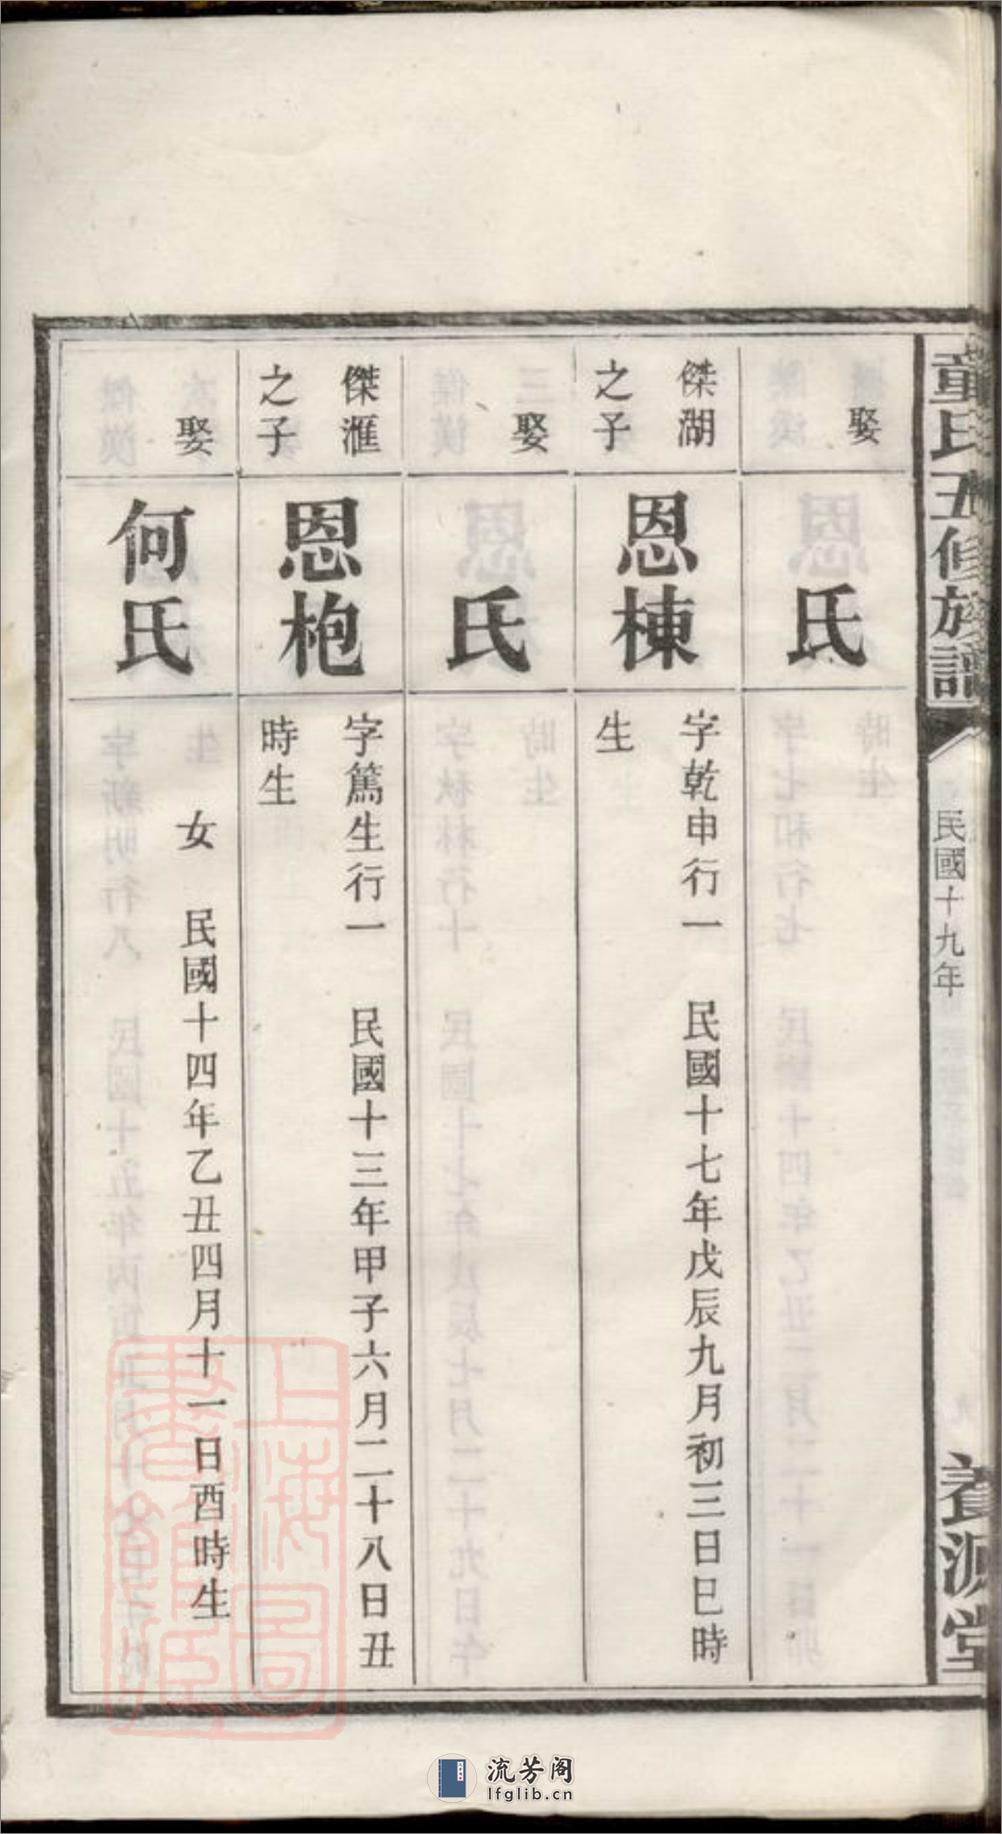 董氏五修族譜
民國十九年
養源堂
娶
氏
傑湖
之子
恩棟
字乾申行一 民國十七年戊辰九月初三日巳時
生
娶
氏
傑滙
之子
恩枹
字篤生行一 民國十三年甲子六月二十八日丑
時生
娶
何氏
女 民國十四年乙丑四月十一日酉時生
上海圖
書館藏
流芳阁
lfglib.cn